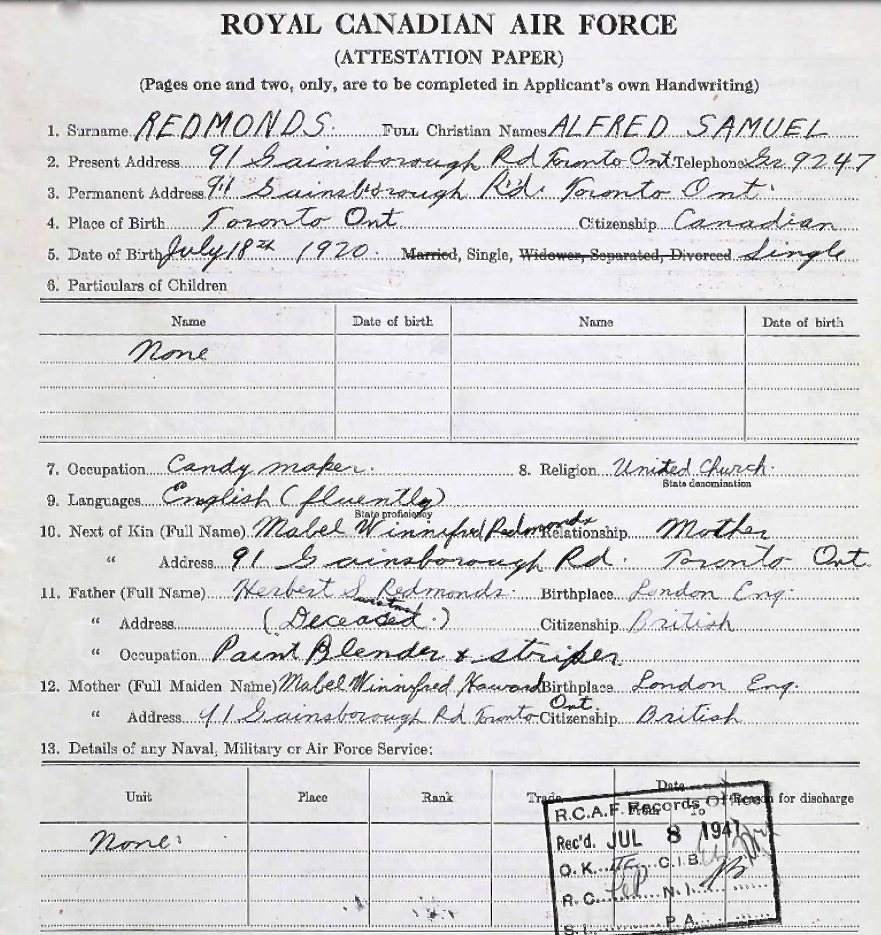 ROYAL CANADIAN AIR FORCE
(ATTESTATION PAPER)
(Pages one and two, only, are to be completed in Applicant's own Handwriting)
1. Surname REDMONDS. FULL Christian Names ALFRED SAMUEL
2. Present Address 91 Gainsborough Rd Toronto Ont. Telephone Gr. 9247
3. Permanent Address 91 Gainsborough Rd. Toronto Ont.
4. Place of Birth Toronto Ont Citizenship Canadian
5. Date of Birth July 18th 1920. Married, Single, Widower, Separated, Divorced Single
6. Particulars of Children
Name Date of birth Name Date of birth
None
7. Occupation Candy maker. 8. Religion United Church.
State denomination
9. Languages English (fluently)
State proficiency
10. Next of Kin (Full Name) Mabel Winnifred Redmonds Relationship Mother
" Address 91 Gainsborough Rd. Toronto Ont.
11. Father (Full Name) Herbert S Redmonds. Birthplace London Eng.
" Address (Deceased.) Citizenship British
" Occupation Paint Blender & striper
12. Mother (Full Maiden Name) Mabel Winnifred Birthplace London Eng.
" Address 91 Gainsborough Rd Toronto Ont Citizenship British
13. Details of any Naval, Military or Air Force Service:
Unit Place Rank Trade Date From To Reason for discharge
None.
R.C.A.F. Records Office
Rec'd. JUL 8 1941
O.K. C.I.B.
R.C. N.I.
S.L. P.A.